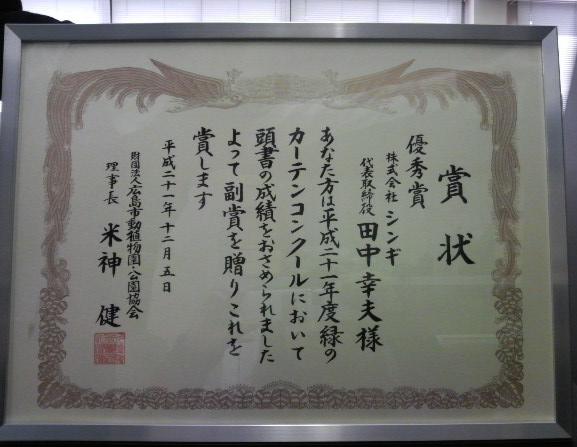 賞状
優秀賞
株式会社 シンギ
代表取締役 田中幸夫様
あなた方は平成二十一年度緑の
カーテンコンクールにおいて
頭書の成績をおさめられました
よって副賞を贈りこれを
賞します
平成二十一年十二月五日
財団法人広島市動植物園・公園協会
理事長 米神 健